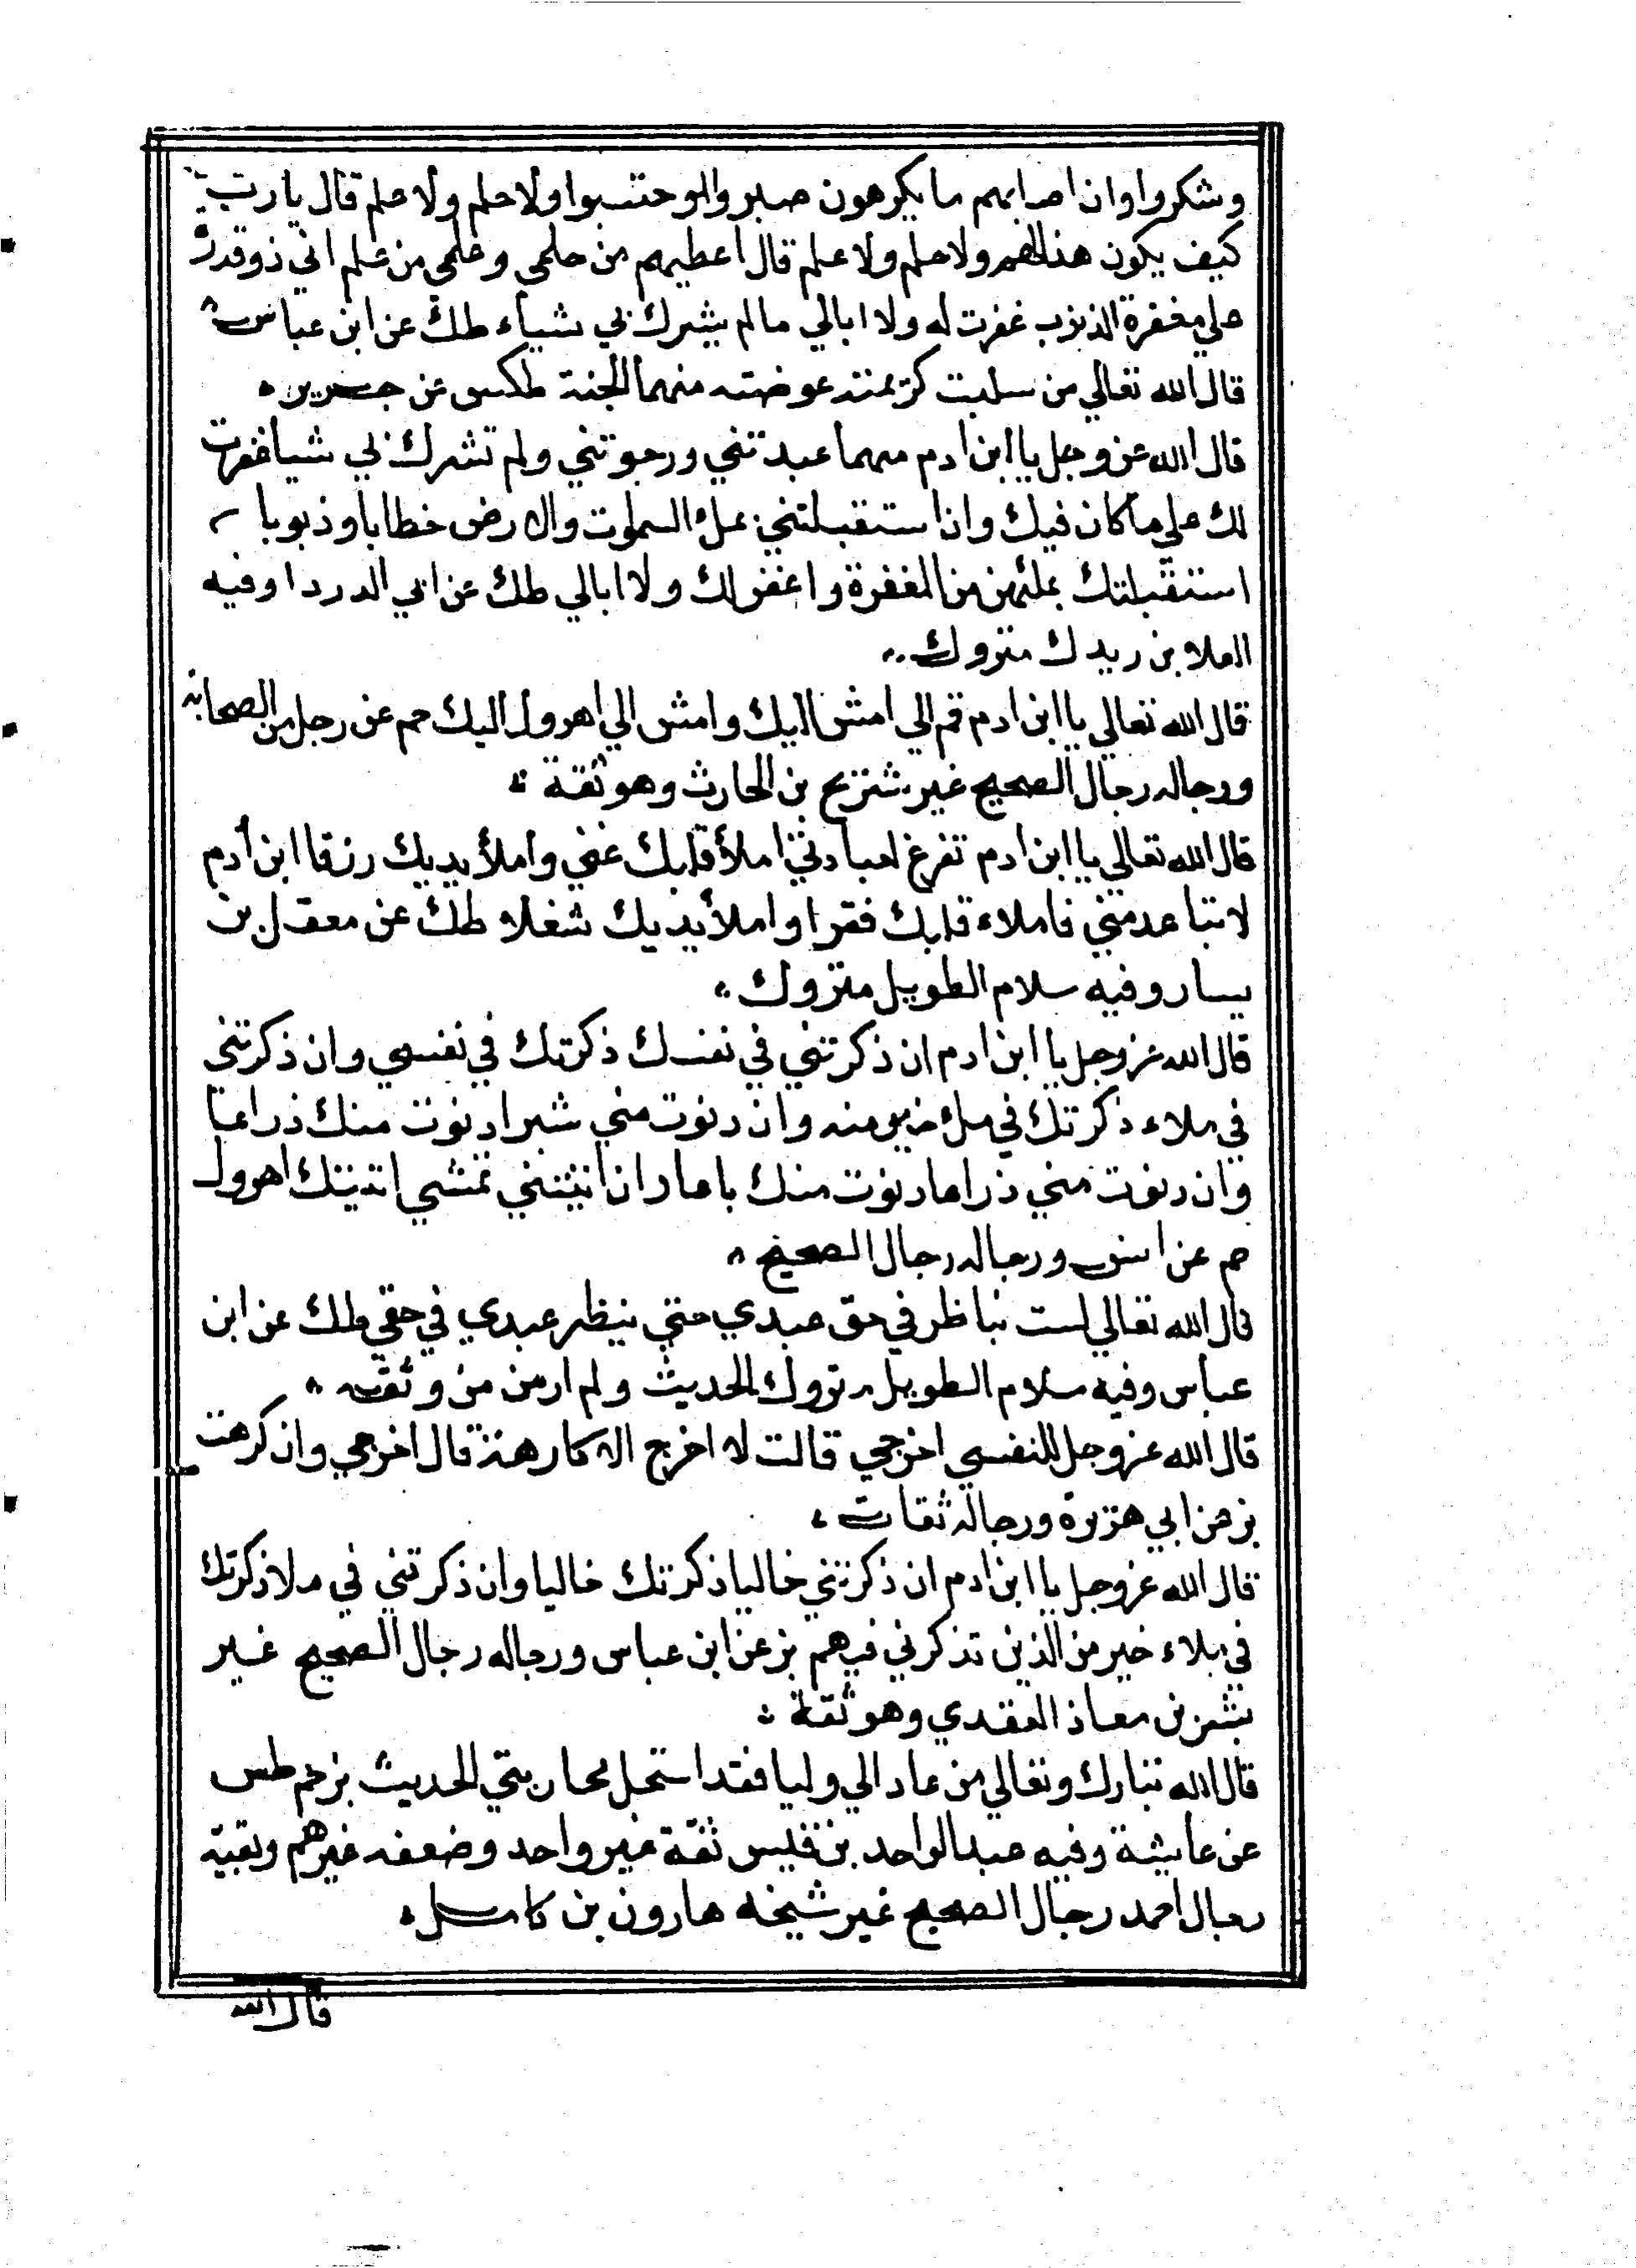 وشكروا وان اصابهم ما يكرهون صبروا واحتسبوا ولا حلم ولا علم قال يا رب
كيف يكون هذا لهم ولا حلم ولا علم قال اعطيهم من حلمي وعلمي من علم اني ذو قدرة
علي مغفرة الذنوب غفرت له ولا ابالي ما لم يشرك بي شياء طك عن ابن عباس
قال الله تعالي من سلبت كريمته عوضته منهما الجنة طكس عن جرير
قال الله عز وجل يا ابن ادم مهما عبدتني ورجوتني ولم تشرك بي شيا غفرت
لك علي ما كان فيك وان استقبلتني بملء السموات والارض خطايا وذنوبا
استقبلتك بملئهن من المغفرة واغفر لك ولا ابالي طك عن ابي الدردا وفيه
العلا بن زيدك متروك
قال الله تعالي يا ابن ادم قم الي امش اليك وامش الي اهرول اليك حم عن رجل من الصحابة
ورجاله رجال الصحيح غير شريح بن الحارث وهو ثقة
قال الله تعالي يا ابن ادم تفرغ لعبادتي املأ قلبك غني واملأ يديك رزقا ابن أدم
لا تباعد مني فاملاء قلبك فقرا واملأ يديك شغلا طك عن معقل بن
يسار وفيه سلام الطويل متروك
قال الله عز وجل يا ابن ادم ان ذكرتني في نفسك ذكرتك في نفسي وان ذكرتني
في ملاء ذكرتك في ملء خير منه وان دنوت مني شبرا دنوت منك ذراعا
وان دنوت مني ذراعا دنوت منك باعا وان اتيتني تمشي اتيتك اهرول
حم عن انس ورجاله رجال الصحيح
قال الله تعالي لست بناظر في حق عبدي حتي ينظر عبدي في حقي طك عن ابن
عباس وفيه سلام الطويل متروك الحديث ولم ار من من وثقه
قال الله عز وجل للنفسي اخرجي قالت لا اخرج الا كارهة قال اخرجي وان كرهت
بز عن ابي هريرة ورجاله ثقات
قال الله عز وجل يا ابن ادم ان ذكرتني خاليا ذكرتك خاليا وان ذكرتني في ملا ذكرتك
في ملاء خير من الذين تذكرني فيهم بز عن ابن عباس ورجاله رجال الصحيح غير
بشر بن معاذ العقدي وهو ثقة
قال الله تبارك وتعالي من عادالي وليا فقد استحل محاربتي الحديث بز حم طس
عن عايشة وفيه عبد الواحد بن قيس ثقة غير واحد وضعفه غيرهم وبقية
رجال احمد رجال الصحيح غير شيخه هارون بن كامل
قال الله